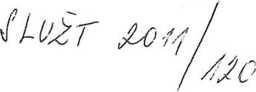 SLUŽT 2011/120